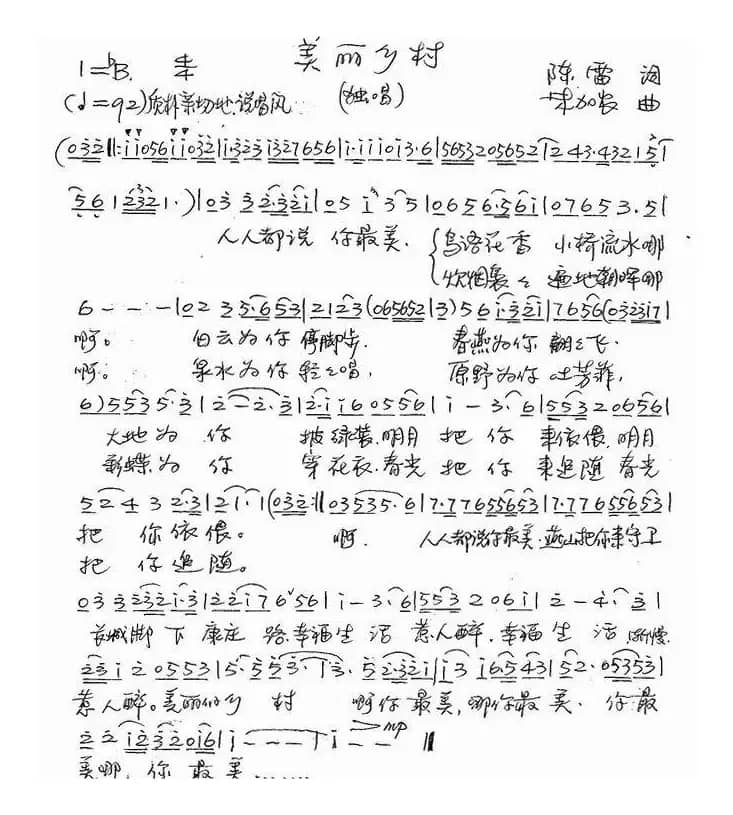 美丽乡村
1=♭B
(♩=92)质朴亲切地、说唱风 (独唱) 陈雷 词
曲
(032||:ii056ii032|i·323i327656|i·iii0i3·6|5653205652|243·4321 5|
56 1 2321·)|03 32·32i|05 i 35|0656·56i|07653·5|
人人都说 你最美. 鸟语花香 小桥流水哪
炊烟袅々 遍地朝晖哪
6---|02 35·653|2123(065652|3)56i·32i|7656(032317|
啊。 白云为你 停脚步. 春燕为你 翩々飞.
啊。 泉水为你 轻々唱, 原野为你 吐芳菲,
6)5535·3|2-2·3|2·ii60556|i-3·6|553206561|
大地为 你 披绿装.明月 把 你 来依偎.明月
彩蝶为 你 穿花衣.春光 把 你 来追随 春光
52432·3|21·1(032:||03535·6|7·77655653|7·77655653|
把 你依偎。 啊. 人人都说你最美.燕山把你来守卫
把 你追随。
03 3232i·3|22i76 56|i-3·6|553206i|2-4·3|
长城脚 下 康庄 路.幸福生 活 惹人醉.幸福 生 活
23i 20553|5·553·|3·52·32i|i3i6·543|52·05353|
惹人醉。美丽的乡 村 啊你最美,哪你最 美. 你最
22i2320i6|i---|i-- mp ||
美哪, 你 最 美.......